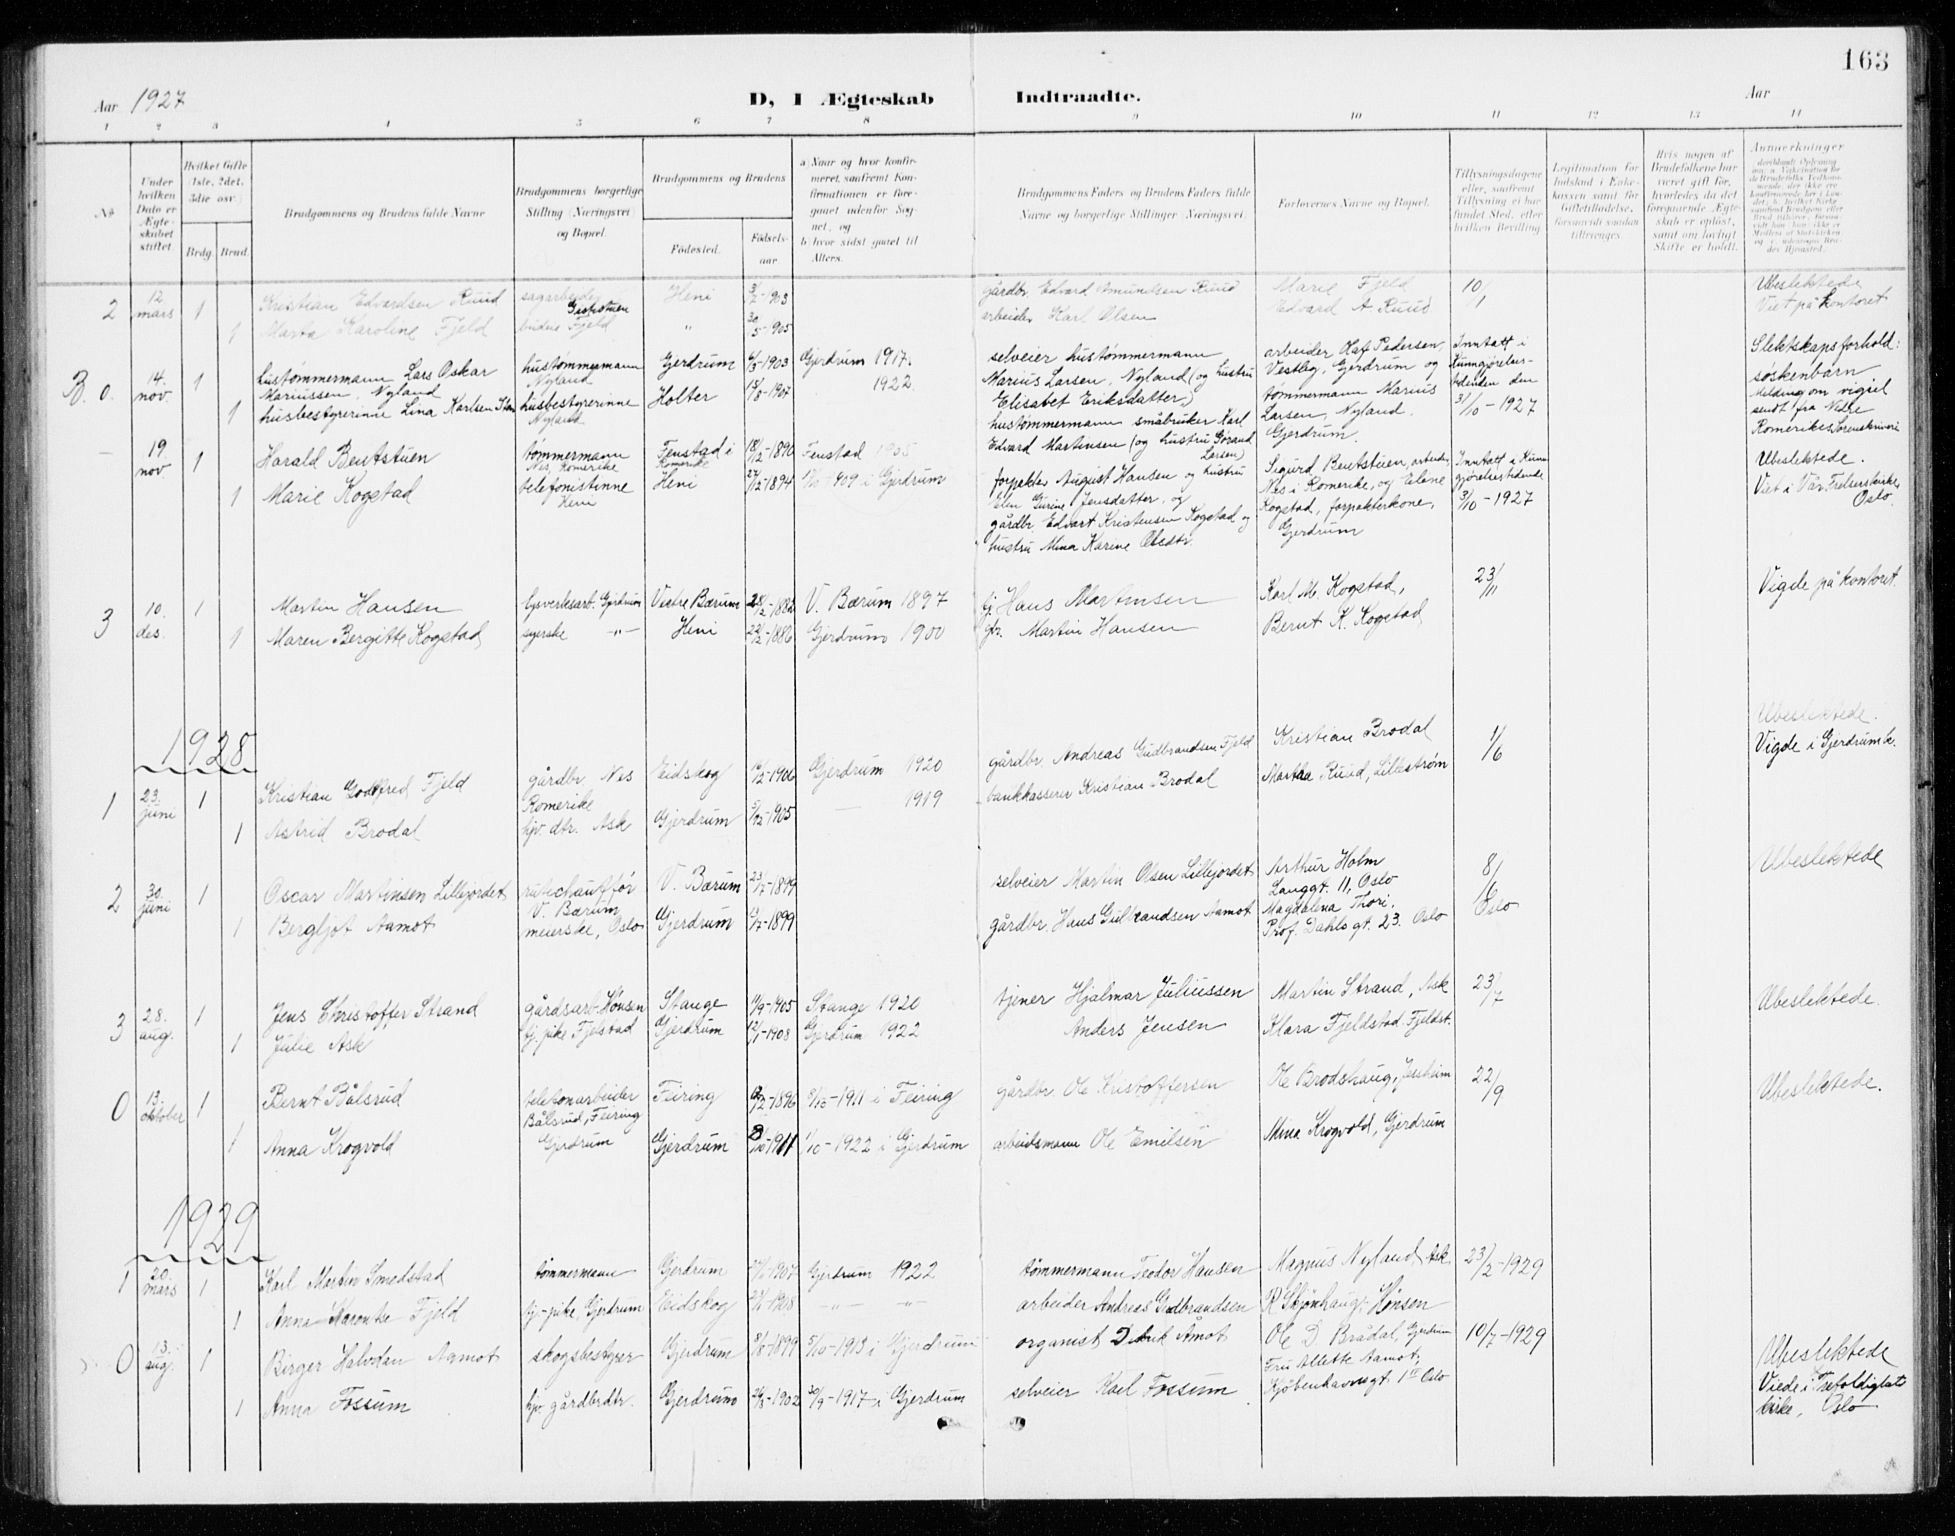 163
Aar 1927
D, I Ægteskab Indtraadte.
Aar
1 2 3 4 5 6 7 8 9 10 11 12 13 14
No
Under hvilken Dato er Ægteskabet stiftet.
Hvilket Gifte (1ste, 2det, 3die osv.)
Brdg. Brud.
Brudgommens og Brudens fulde Navne
Brudgommens borgerlige Stilling (Næringsvei) og Bopæl.
Brudgommens og Brudens
Fødested.
Fødselsaar.
a) Naar og hvor konfirmeret, saafremt Konfirmationen er foregaaet udenfor Sognet, og
b) hvor sidst gaaet til Alters.
Brudgommens Faders og Brudens Faders fulde Navne og borgerlige Stillinger (Næringsvei).
Forlovernes Navne og Bopæl.
Tillysningsdagene eller, saafremt Tillysning ei har fundet Sted, efter hvilken Bevilling
Legitimation for Indskud i Enkekassen samt for Giftetilladelse, forsaavidt saadan tiltrænges.
Hvis nogen af Brudefolkene har været gift før, hvorledes da det foregaaende Ægteskab er opløst, samt om lovligt Skifte er holdt.
Anmerkninger
2 12 mars 1 Kristian Edvardsen Ruud sagarbeider Heni 3/2-1903 gårdbr. Edvard Amundsen Ruud Marie Fjeld 10/1 Ubeslektede
1 Marta Karoline Fjeld budeie Fjeld " 30/5-1905 arbeider Karl Olsen Edvard A Ruud Viet på kontoret
3. 0. 14. nov. 1 hustømmermann Lars Oskar Mariussen, Nyland hustømmermann Nyland Gjerdrum 6/3-1903 Gjerdrum 1917.
selveier hustømmermann Marius Larsen, Nyland (og hustru Elisabet Eriksdatter,)
arbeider Olaf Pedersen Vestbg, Gjerdrum og tømmermann Marius Larsen, Nyland, Gjerdrum.
Inntatt i Kunngjørelsestidenden den 3/10-1927
Slektskapsforhold: søskenbarn
Melding om vigsel sendt fra Nedre Romerikes Sorenskriveri
1 husbestyrerinne Lina Karlsen husbestyrerinne Nyland Holter 15/8-1907 1922.
hustømmermann småbruker Karl Edvard Martinsen (og hustru Larsen)
19. nov 1 Harald Bentstuen tømmermann Nes, Romerike Fenstad i Romerike 18/12-1890 Fenstad 1905
forpakter August Hansen og hustru Elen Gurine Jensdatter, og
Sigurd Bentstuen, arbeider, Nes i Romerike, og Elene Kogstad, forpakterkone, Gjerdrum
Inntatt i Kunngjørelsestidende 3/10-1927
Ubeslektede.
Viet i Vår Frelsers kirke, Oslo.
1 Marie Kogstad telefonistinne Heni Heni 27/12-1894 1909 i Gjerdrum
gårdbr. Edvart Kristensen Kogstad og hustru Mina Karine Olsdtr.
3 10. des. 1 Martin Hansen lysverksarb. Gjerdrum Vestre Bærum 28/2-1882 V. Bærum 1897 Hans Martinsen Karl M. Kogstad, 23/11 Vigde på kontoret
1 Maren Bergitte Kogstad syerske -"- Heni 22/2-1886 Gjerdrum 1900 Martin Hansen Bernt K. Kogstad
1928
1 23. juni 1 Kristian Godtfred Fjeld gårdbr. Nes Romerike Eidskog 1906 Gjerdrum 1920 gårdbr. Andreas Gudbrandsen Fjeld Kristian Brodal 1/6 Ubeslektede.
Vigde i Gjerdrum k.
1 Astrid Brodal hjv. dtr. Ask Gjerdrum 5/12-1905 — 1919 bankkasserer Kristian Brodal Martha Ruud, Lillestrøm
2 30. juni 1 Oscar Martinsen Lillejordet rutechauffør V. Bærum V. Bærum 23/7-1899 selveier Martin Olsen Lillejordet Arthur Holm Langgt. 11, Oslo 8/6 Oslo Ubeslektede
1 Bergljot Aamot meierske, Oslo Gjerdrum 6/7-1899 gårdbr. Hans Gulbrandsen Aamot Magdalena Thori, Prof. Dahls gt. 23. Oslo
3 28. aug. 1 Jens Christoffer Strand gårdsarb. Hønsen Stange 11/9-1905 Stange 1920 tjener Hjalmar Juliussen Martin Strand, Ask 23/7 Ubeslektede.
1 Julie Ask tj. pike Fjelstad Gjerdrum 12/1-1908 Gjerdrum 1922 Anders Jensen Klara Fjeldstad Fjeldst.
0 13. oktober 1 Bernt Bålsrud telefonarbeider Bålsrud, Feiring Feiring 1896 8/10-1911 i Feiring gårdbr. Ole Kristoffersen Ole Brodshaug, Jessheim 22/9 Ubeslektede.
1 Anna Krogvold Gjerdrum Gjerdrum 8/10-1911 1/10-1922 i Gjerdrum arbeidsmann Ole Emilsen Mina Krogvold, Gjerdrum
1929
1 20. mars 1 Karl Martin Smedstad tømmermann Gjerdrum 1907 Gjerdrum 1922 tømmermann Teodor Hansen Magnus Nyland, Ask 23/2-1929
1 Anna Fjeld tj.-pike, Gjerdrum Eidskog 1908 -"- -"- arbeider Andreas Gudbrandsen K Skjønhaug, Hønsen
0 13. aug. 1 Birger Halvdan Aamot skogsbestyrer Gjerdrum 8/8-1899 5/10-1913 i Gjerdrum organist Åmot Ole D Brådal, Gjerdrum 10/7-1929 Ubeslektede
Viede i Trefoldighets kirke, Oslo
1 Anna Fossum hjv. gårdbrdtr. Gjerdrum 26/8-1902 30/9-1917 i Gjerdrum selveier Karl Fossum Fru Allette Aamot, Kjøbenhavnsgt 1 Oslo